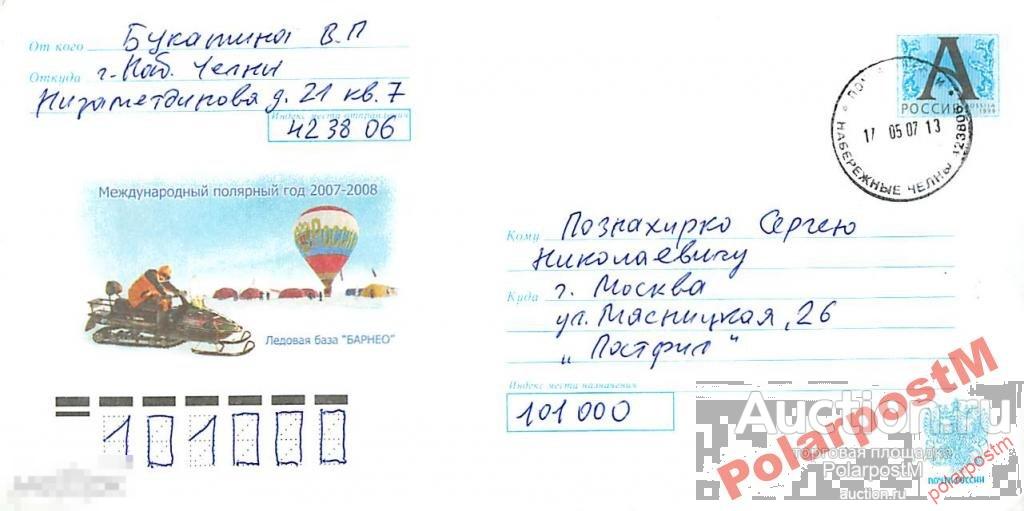 От кого Букатина В.П
Откуда г. Наб. Челны
Низаметдинова д. 21 кв. 7
Индекс места отправления
423806
Международный полярный год 2007-2008
Ледовая база "БАРНЕО"
101000
А
РОССИЯ
ROSSIJA 1999
17 05 07 13
НАБЕРЕЖНЫЕ ЧЕЛНЫ 423806
Кому Познахирко Сергею
Николаевичу
Куда г. Москва
ул. Мясницкая, 26
„Постфил"
Индекс места назначения
101000
Auction.ru
торговая площадка
PolarpostM
auction.ru
PolarpostM
polarpostm
ПОЧТА РОССИИ